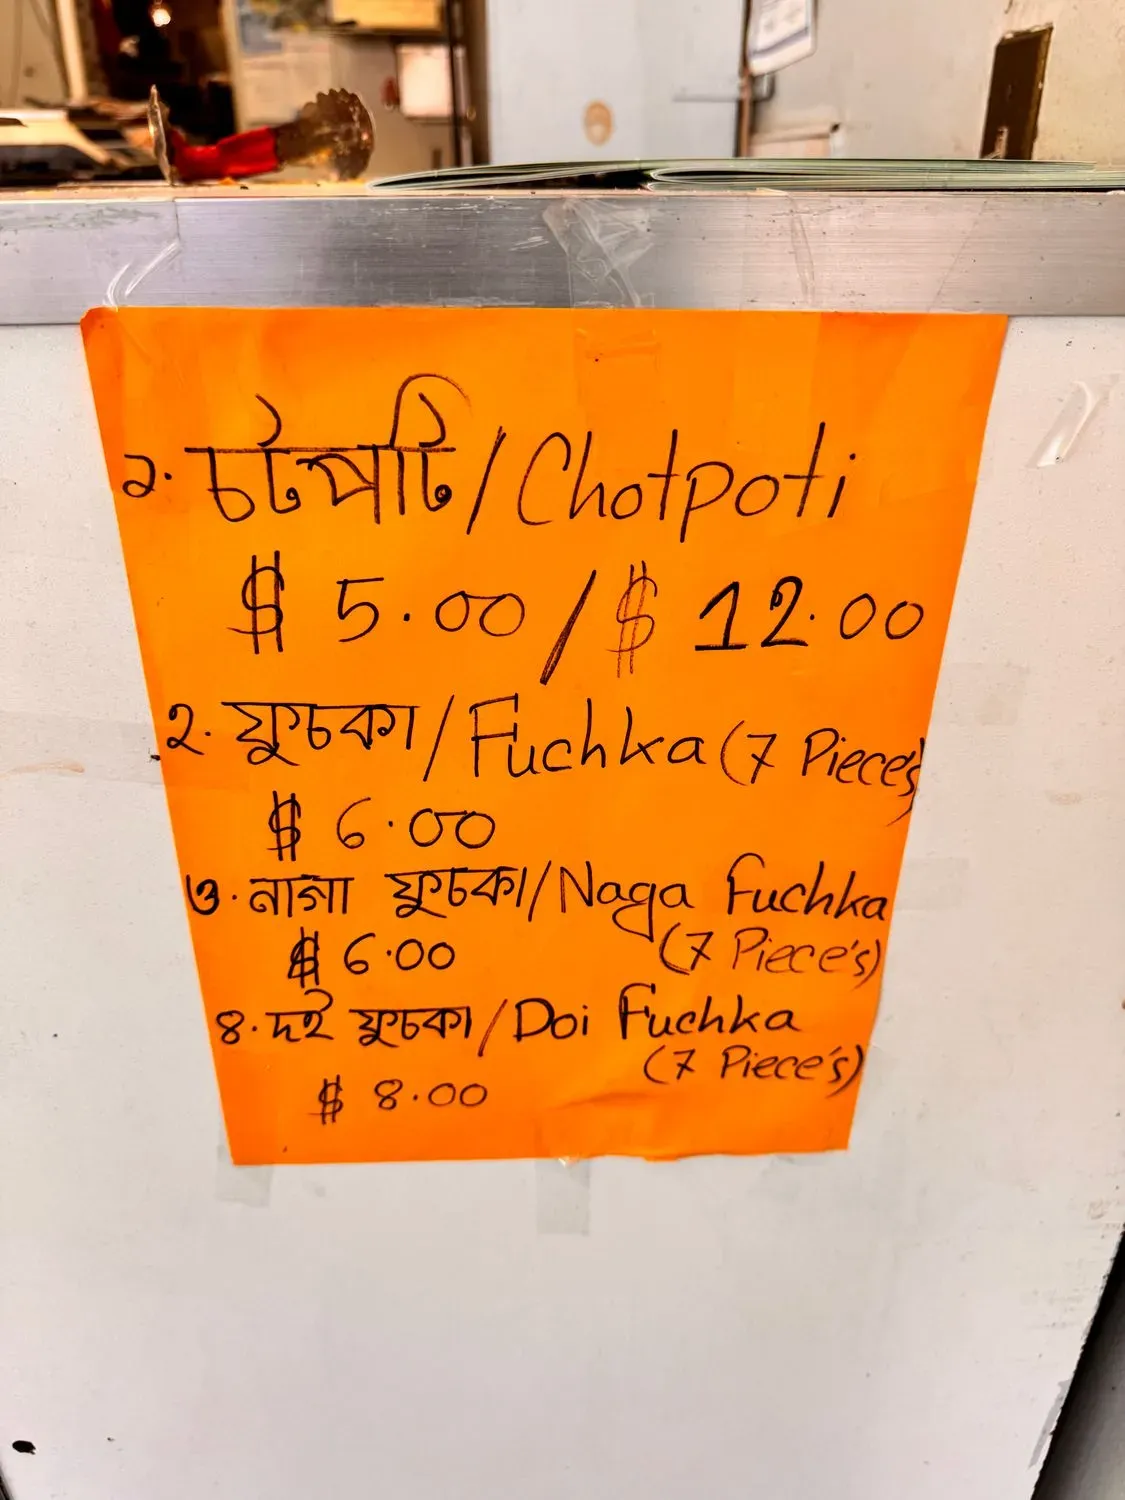 ১. চটপটি/Chotpoti
$ 5.00/$ 12.00
২. ফুচকা/Fuchka (7 Piece's)
$ 6.00
৩. নাগা ফুচকা/Naga Fuchka
$ 6.00 (7 Piece's)
৪. দই ফুচকা/Doi Fuchka
(7 Piece's)
$ 8.00